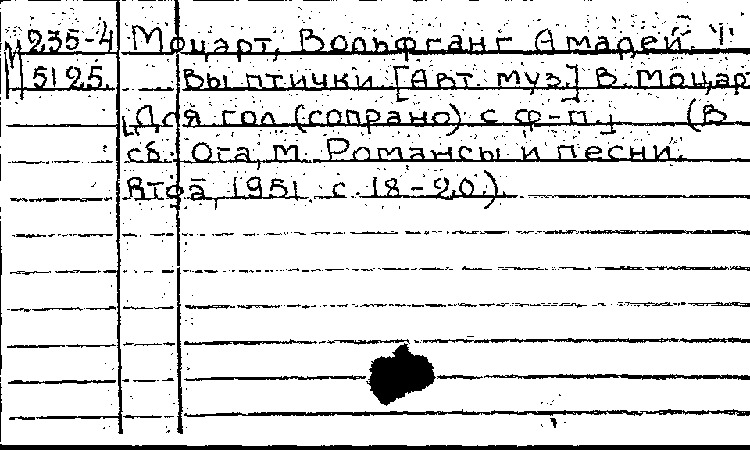 М 235-4 Моцарт, Вольфганг Амадей.
5125. Вы птички [Авт. муз.] В. Моцар
[Для гол (сопрано) с ф-п.] (В
сб: Ога, М. Романсы и песни.
1951. с. 18-20.).